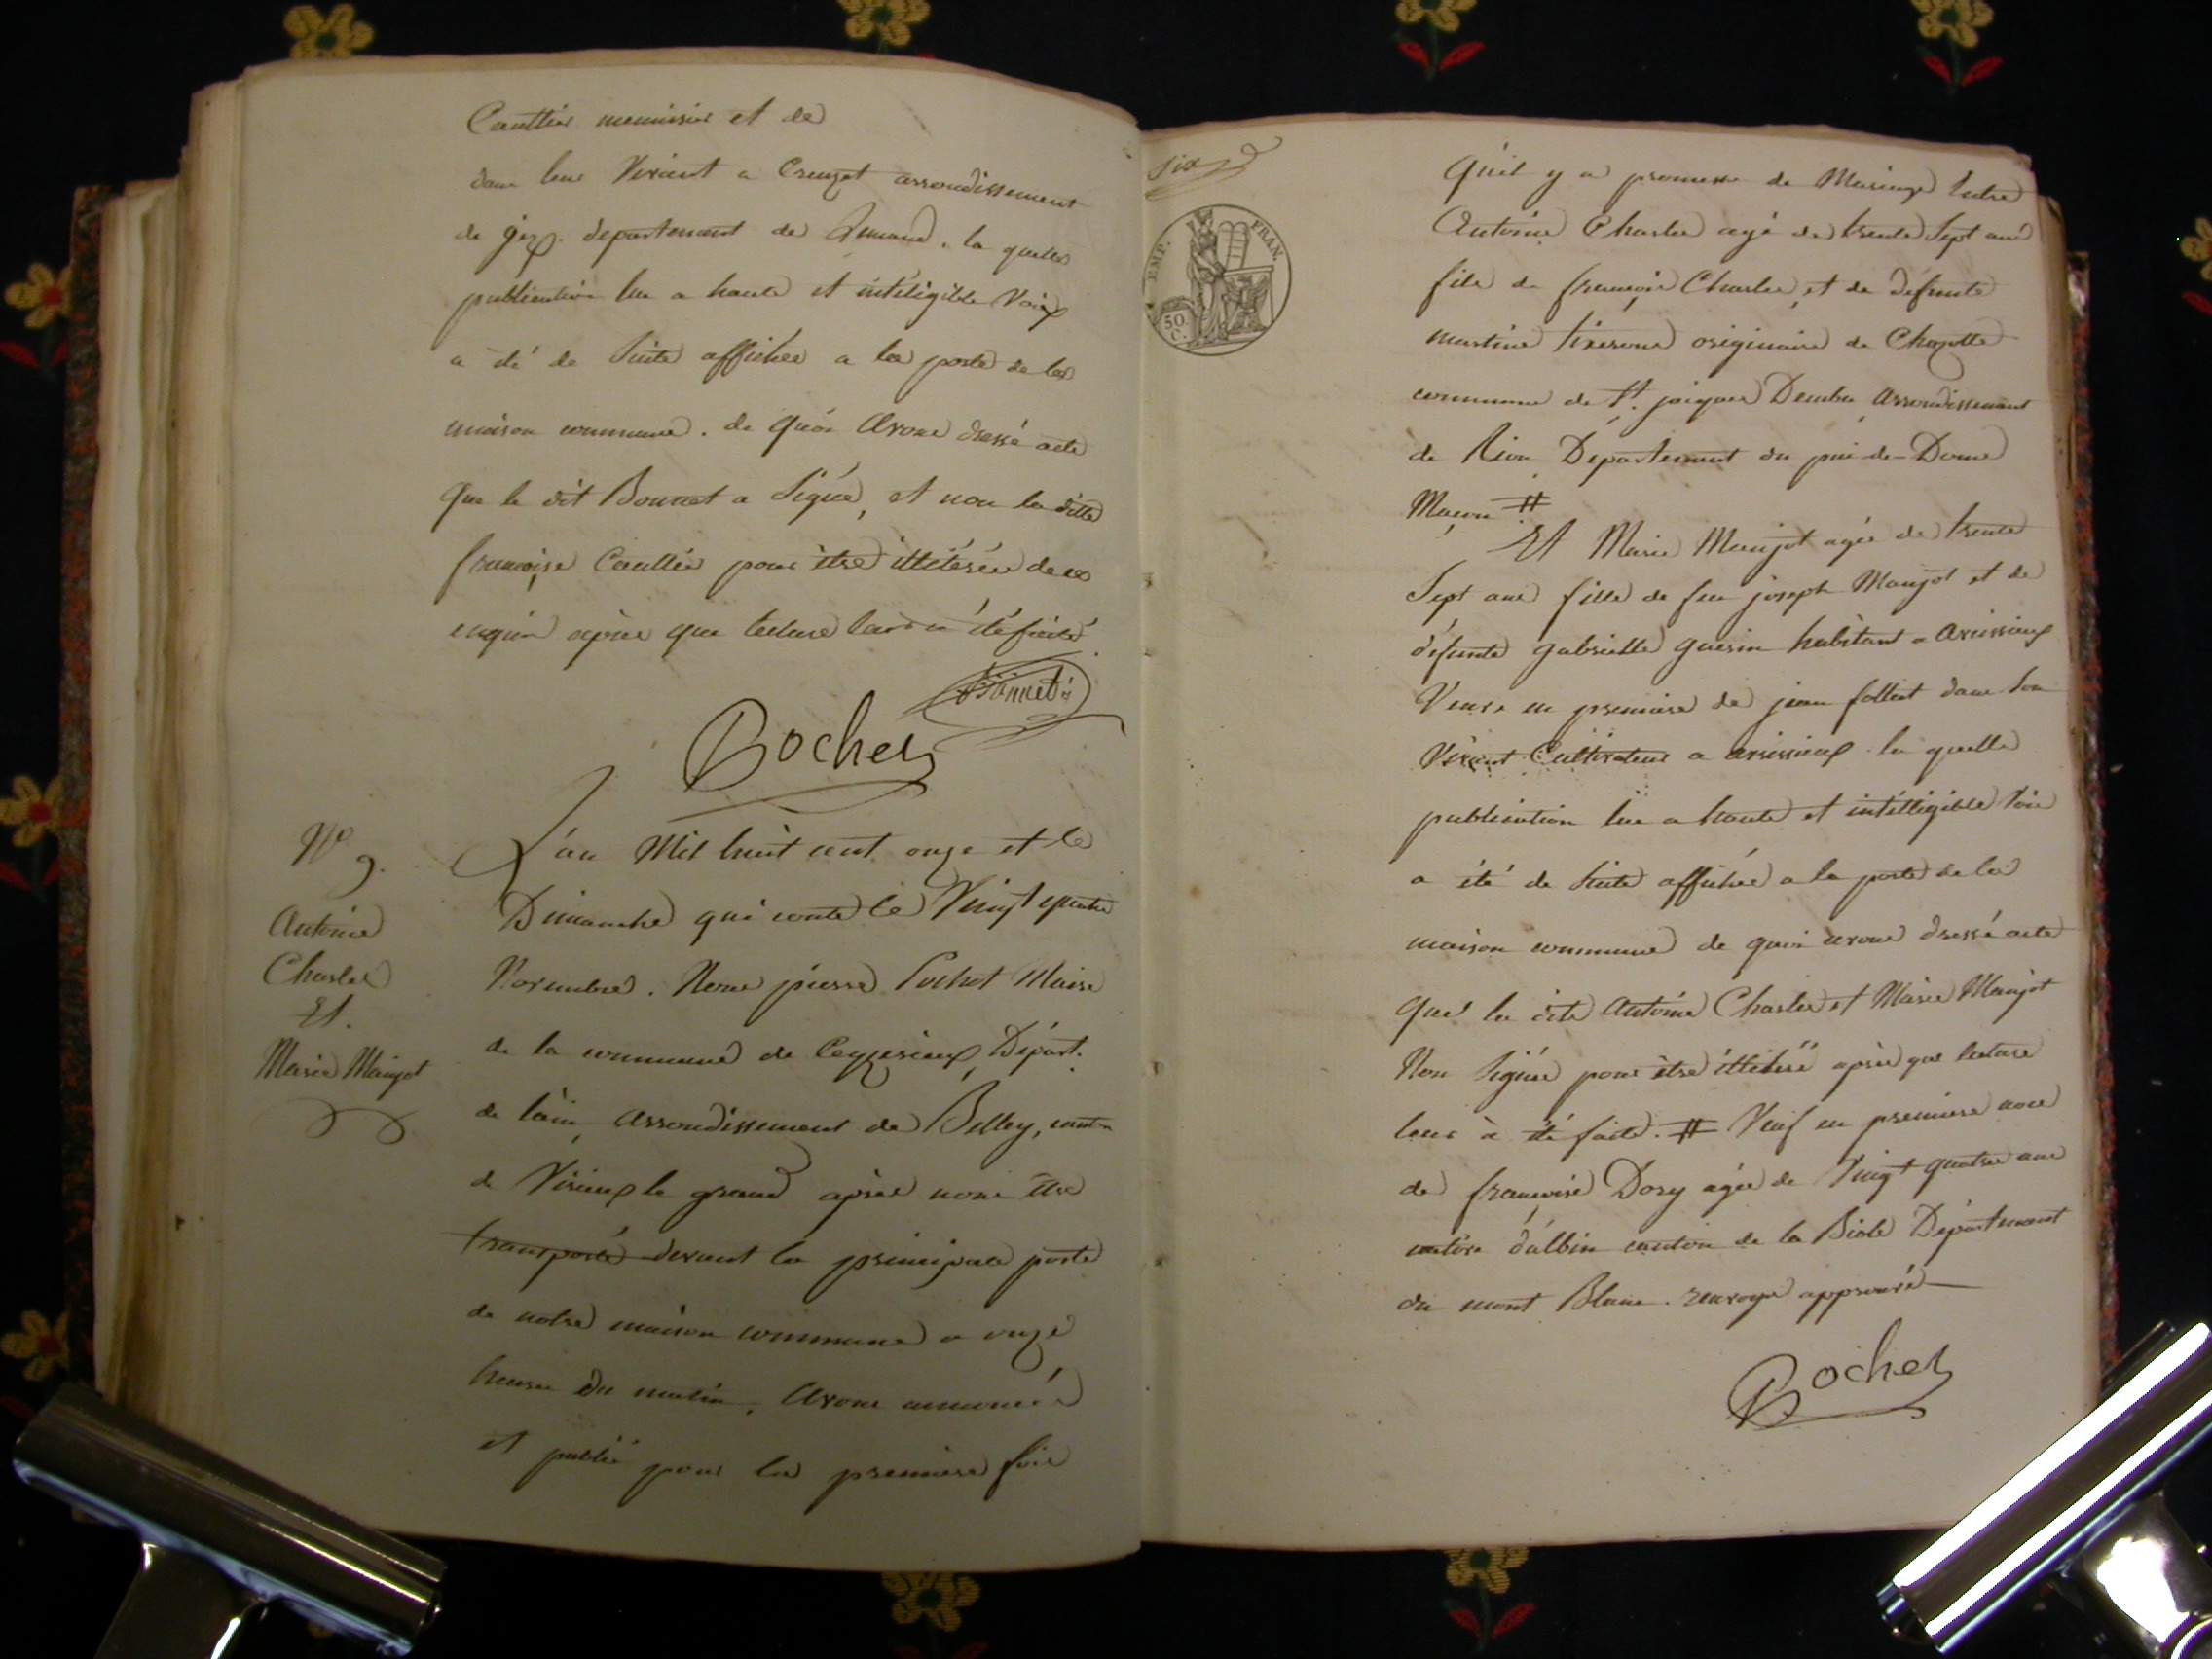 Cauttier menuisier et de
dans leur Vivant a Creuzet arrondissement
de gex. departement de Lemand. la quelle
publication lue a haute et inteligible Voix
a été de Suite affichée a la porte de la
maison commune. de quoi avons dressé acte
que le dit Bonnet a Signé, et non la ditte
françoise Cauttier pour être illétérée de ce
enquis après que lecture leur a été faite
Bonnet
Bochet
N° 9.
Antoine
Charles
Et.
Marie Maujot
L'an Mil huit cent onze et le
Dimanche qui conte le Vingt quatre
Novembre. Nous pierre Pochet Maire
de la commune de Ceyzerieux, Départ.
de l'ain, arrondissement de Belley, canton
de Virieux le grand après nous être
transporté devant la principale porte
de notre maison commune a onze
heures du matin, avons annoncé
et publié pour la premiere fois
Six
EMP. FRAN.
50 C.
Qu'il y a promesse de Mariage Entre
Antoine Charles agé de trente Sept ans
fils de françois Charles, et de défunte
martine originaire de Chazotte
commune de St. jacques Dembu arrondissement
de Rion Département du pui-de-Dome
Maçon #
Et Marie Maujot agée de trente
Sept ans fille de feu joseph Maujot et de
défunte gabrielle guerin habitant a
Veuve en premiere de jean folliet dans son
Vivant Cultivateur a la quelle
publication lue a haute et intélligible Voix
a été de Suite affichée a la porte de la
maison commune de quoi avons dressé acte
que les dits Antoine Charles et Marie Maujot
Non Signé pour être illitéré après que lecture
leur à été faite. # Veuf en premiere noce
de françoise Dory agée de Vingt quatre ans
native d'albin canton de la Biole Département
du mont Blanc. renvoye approuvé
Bochet